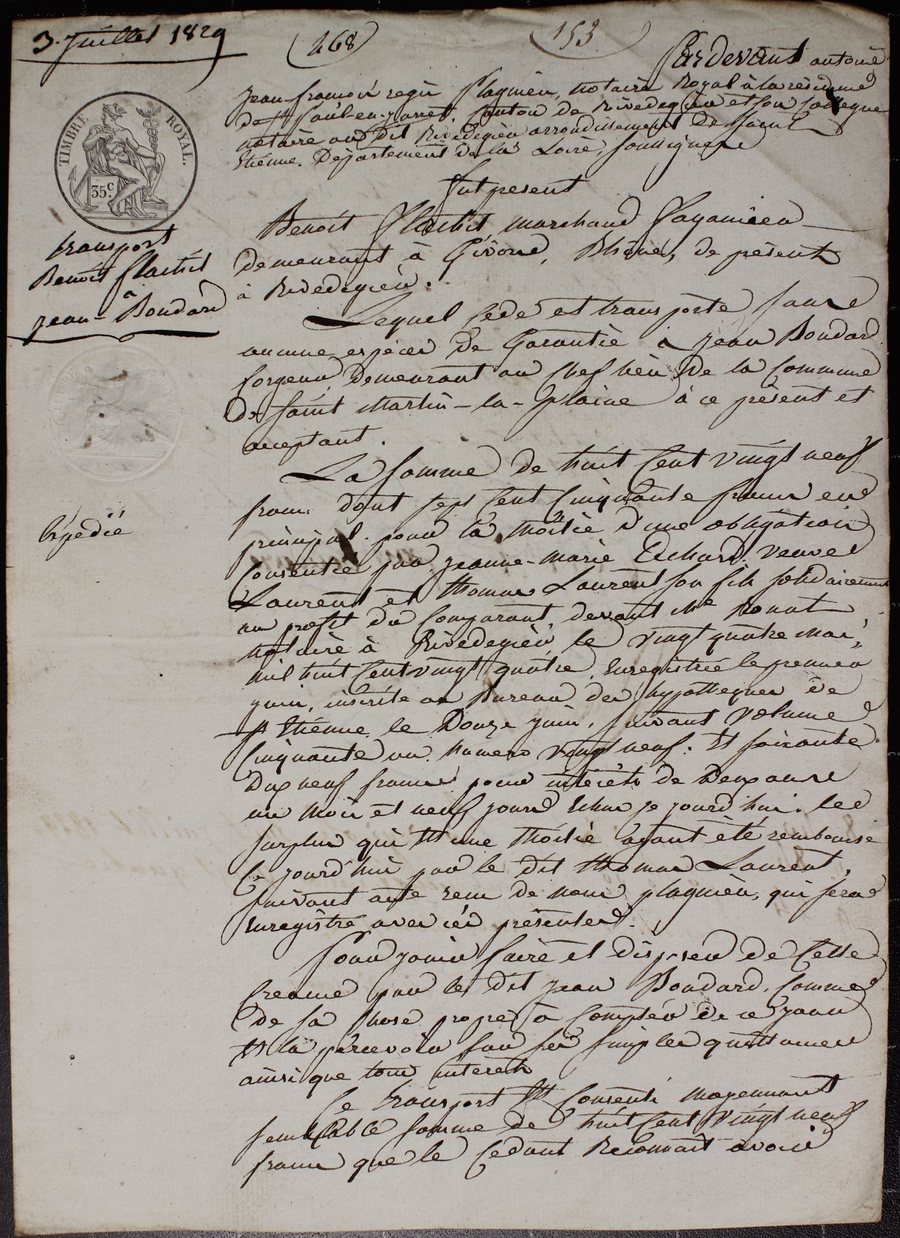 3. Juillet 1829
468
153
TIMBRE ROYAL.
35 c.
transport
Benoit flachet
à
jean Boudard
Expédié
Pardevant antoine
jean françois regis plagnieu, notaire Royal à la résidence
de St Paul-en-jarret, Canton de Rivedegier et son Collegue
notaire au dit Rivedegier arrondissement de saint
Etienne. Département de la Loire, soussignés
fut present
Benoit flachet, marchand
demeurant à Givors, Rhône, de présent
à Rivedegier.
Lequel cede et transporte sans
aucune espèce de Garantie à jean Boudard
forgeur, demeurant au chef lieu de la Commune
de saint Martin-la-plaine à ce présent et
acceptant.
La somme de huit Cent vingt neuf
francs dont sept Cent Cinquante francs en
principal pour la Moitié d'une obligation
Consentie par jeanne-marie Echard, veuve
Laurent et thomas Laurent son fils solidairement
au profit du Comparant, devant Me
notaire à Rivedegier le vingt quatre mai
mil huit Cent vingt quatre, enregistrée le premier
juin, inscrite au Bureau des hypotheques de
St Etienne, le Douze juin, suivant volume
Cinquante un numero vingt neuf. Et soixante
Dix neuf francs pour intérêts de Deux ans
un mois et neuf jours échus ce jourd'hui. le
surplus qui est une Moitié ayant été remboursé
Ce jourd'hui par le dit thomas Laurent,
suivant acte reçu de nous plagnieu, qui sera
enregistré avec ces présentes.
Pour jouir faire et disposer de Cette
Creance par le dit jean Boudard, Comme
De sa chose propre à Compter de ce jour
Et la percevoir sur ses simples quittances
ainsi que tous interets
Ce transport est Consenti moyennant
semblable somme de huit Cent vingt neuf
francs que le Cedant Reconnait avoir